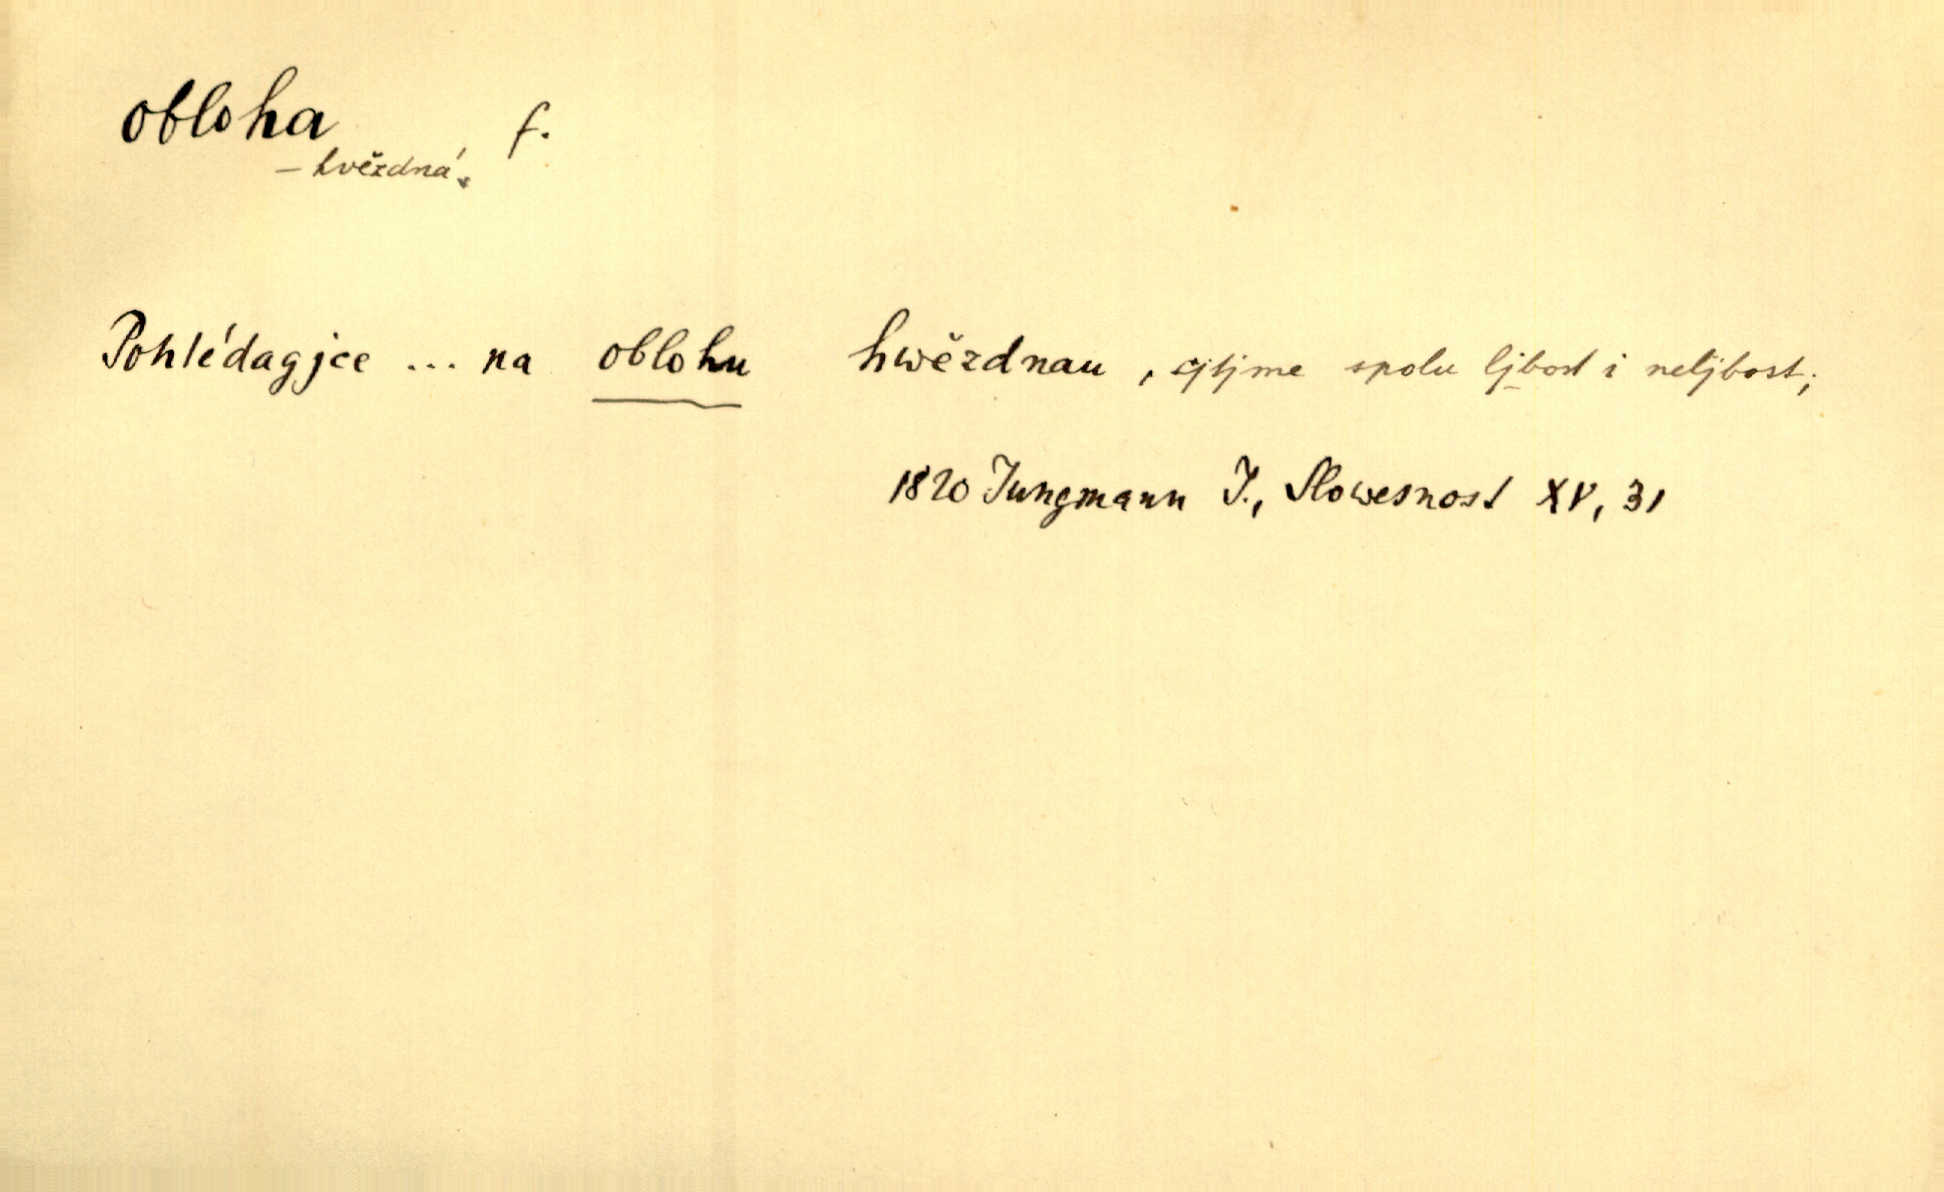 obloha f.
– hvězdná.
Pohlédagjce ... na oblohu hwězdnau, cjtjme spolu ljbost i neljbost;
1820 Jungmann J., Slowesnost XV, 31